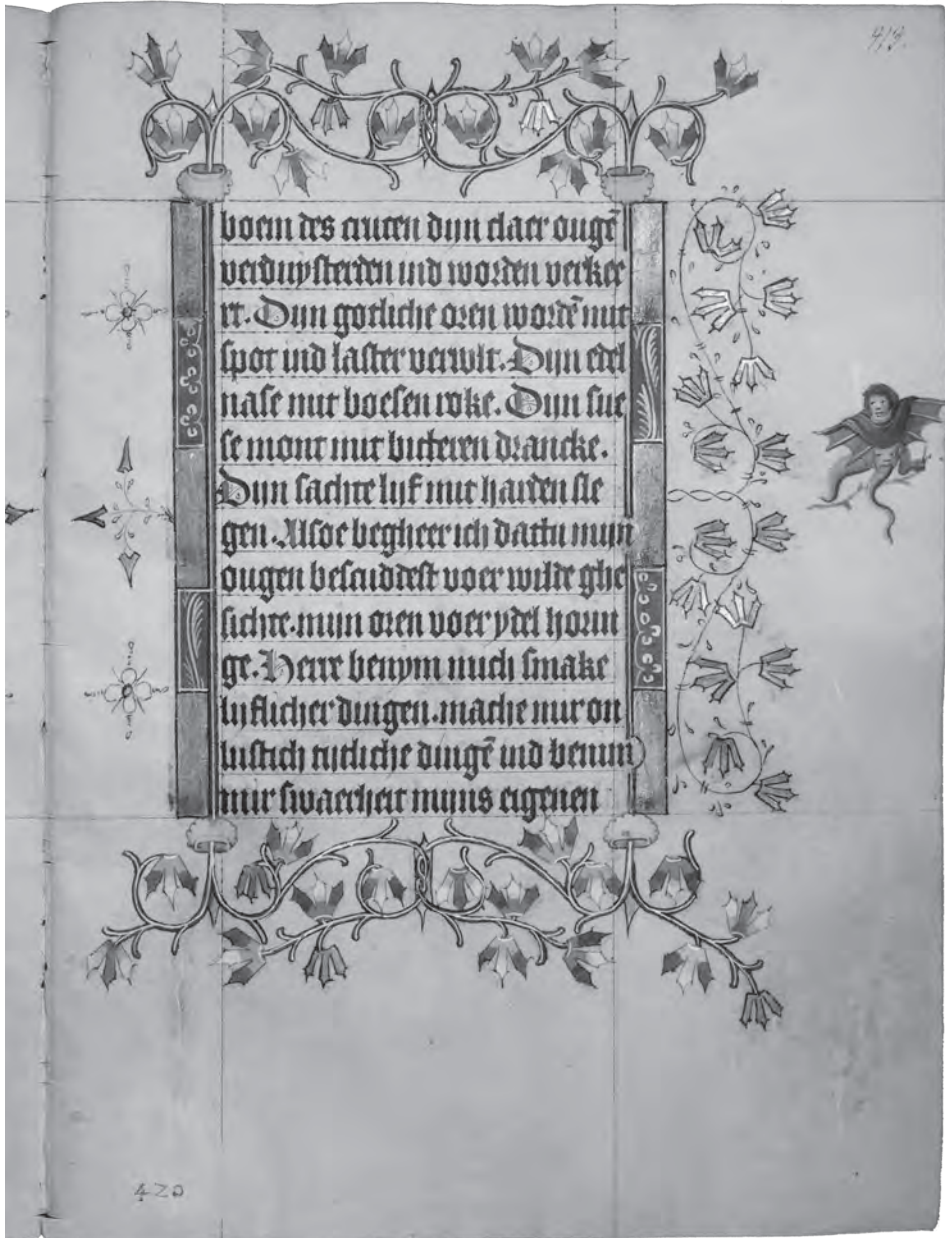 419.
boem des crucen dijn claer ougē
verduysterden ind worden verkee
rt. Dijn gotliche oren wordē mit
spot ind laster verwlt. Dijn edel
nase mit boesen roke. Dijn sue
se mont mit bitteren drancke.
Dijn sachte lijf mit harden sle
gen. Alsoe begheer ich dattu mijn
ougen bescuddest voer wilde ghe
sichte. mijn oren voer ydel horin
ge. Herre benym mich smake
lijflicher dingen. mache mir on
lustich tijtliche dingē ind benim
mir swaerheit mijns eigenen
420